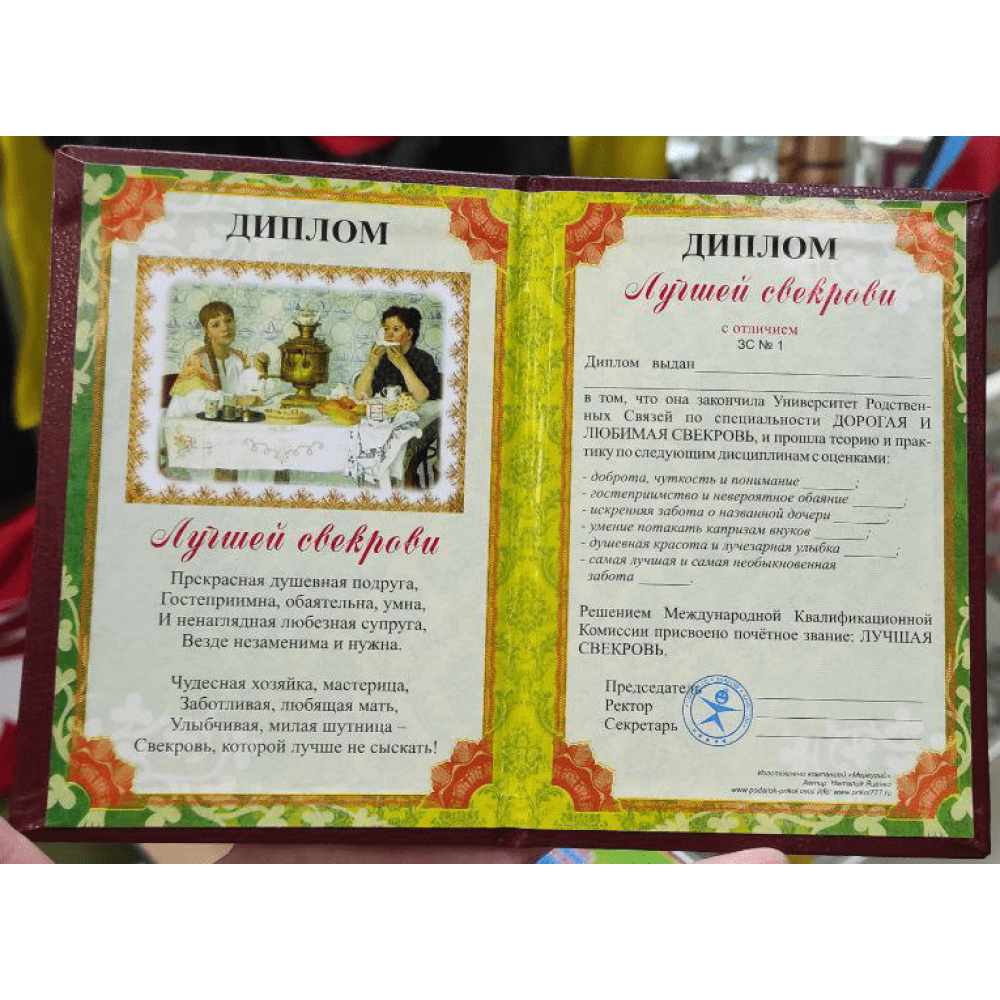 ДИПЛОМ
Лучшей свекрови
Прекрасная душевная подруга,
Гостеприимна, обаятельна, умна,
И ненаглядная любезная супруга,
Везде незаменима и нужна.
Чудесная хозяйка, мастерица,
Заботливая, любящая мать,
Улыбчивая, милая шутница –
Свекровь, которой лучше не сыскать!
ДИПЛОМ
Лучшей свекрови
с отличием
ЗС № 1
Диплом выдан
в том, что она закончила Университет Родствен-
ных Связей по специальности ДОРОГАЯ И
ЛЮБИМАЯ СВЕКРОВЬ, и прошла теорию и прак-
тику по следующим дисциплинам с оценками:
- доброта, чуткость и понимание ______;
- гостеприимство и невероятное обаяние ______;
- искренняя забота о названной дочери ______;
- умение потакать капризам внуков ______;
- душевная красота и лучезарная улыбка ______;
- самая лучшая и самая необыкновенная
забота ______.
Решением Международной Квалификационной
Комиссии присвоено почётное звание: ЛУЧШАЯ
СВЕКРОВЬ.
Председатель
Ректор
Секретарь
Изготовлено компанией «Меркурий»
Автор: Наталия Яценко